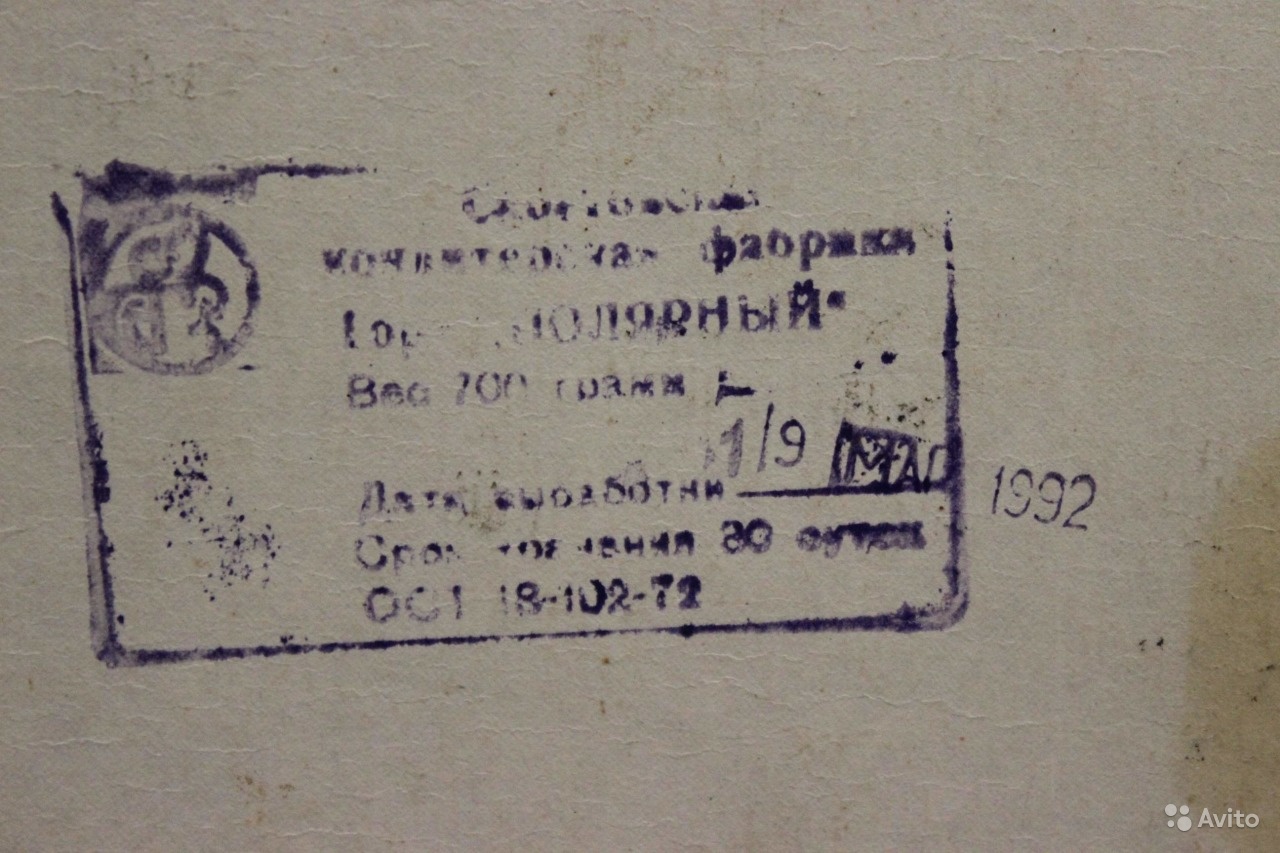 кондитерская фабрика
„ПОЛЯРНЫЙ“
Вес 700 грамм
1/9 МАР 1992
Дата выработки
Срок хранения 30 суток
ОСТ 18-102-72
Avito